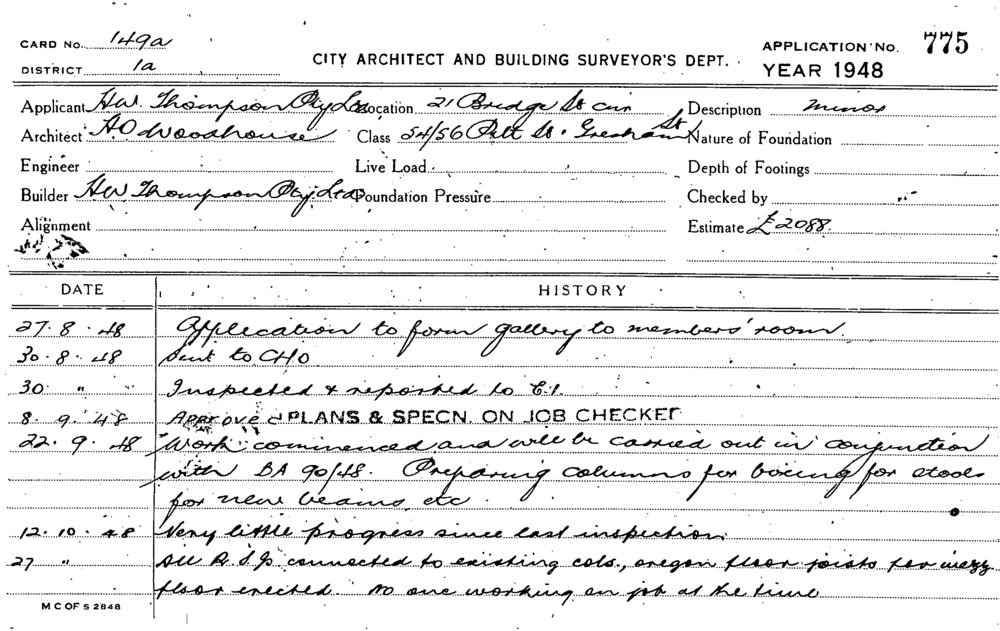 CARD No. 149a
CITY ARCHITECT AND BUILDING SURVEYOR'S DEPT.
APPLICATION No. 775
DISTRICT 1a
YEAR 1948
Applicant H.W. Thompson Pty Ltd Location 21 Bridge St cnr Description Minor
Architect H O Woodhouse Class 54/56 Pitt St. Gresham St Nature of Foundation
Engineer Live Load Depth of Footings
Builder HW Thompson Pty Ltd Foundation Pressure Checked by
Alignment Estimate £2088.
DATE HISTORY
27.8.48 Application to form gallery to members' room.
30.8.48 Sent to CHO
30 " " Inspected & reported to C.I.
8.9.48 Approved PLANS & SPECN. ON JOB CHECKED
22.9.48 Work commenced and will be carried out in conjunction
with BA 90/48. Preparing columns for boxing for stools
for new beams, etc.
12.10.48 Very little progress since last inspection.
27 " All R.S.Js connected to existing cols., oregon floor joists for mezz
floor erected. No one working on job at the time
M C OF S 2848